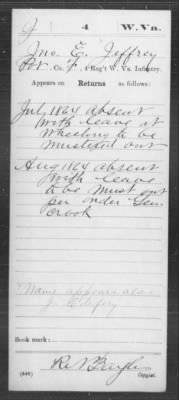 J 4 W. Va.
Jno. E. Jeffrey
Pvt., Co. F, 4 Reg't W. Va. Infantry.
Appears on Returns as follows:
July 1864 absent
with leave at
Wheeling to be
mustered out
Aug 1864 absent
with leave
to be must out
per order Gen.
Crook
Name appears also
J.
Book mark:
(546) Copyist.